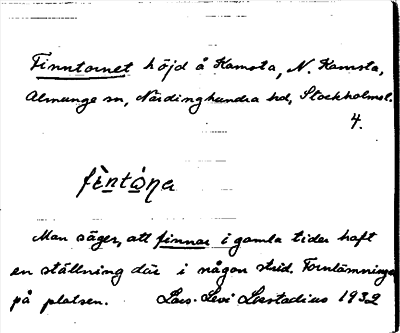 Finntornet höjd å Kamsta, N. Kamsta,
Almunge sn, Närdinghundra hd, Stockholmsl.
4.
fìntɑ́ŋa
Man säger, att finnar i gamla tider haft
en ställning där i någon strid. Fornlämningar
på platsen. Lars-Levi Læstadius 1932